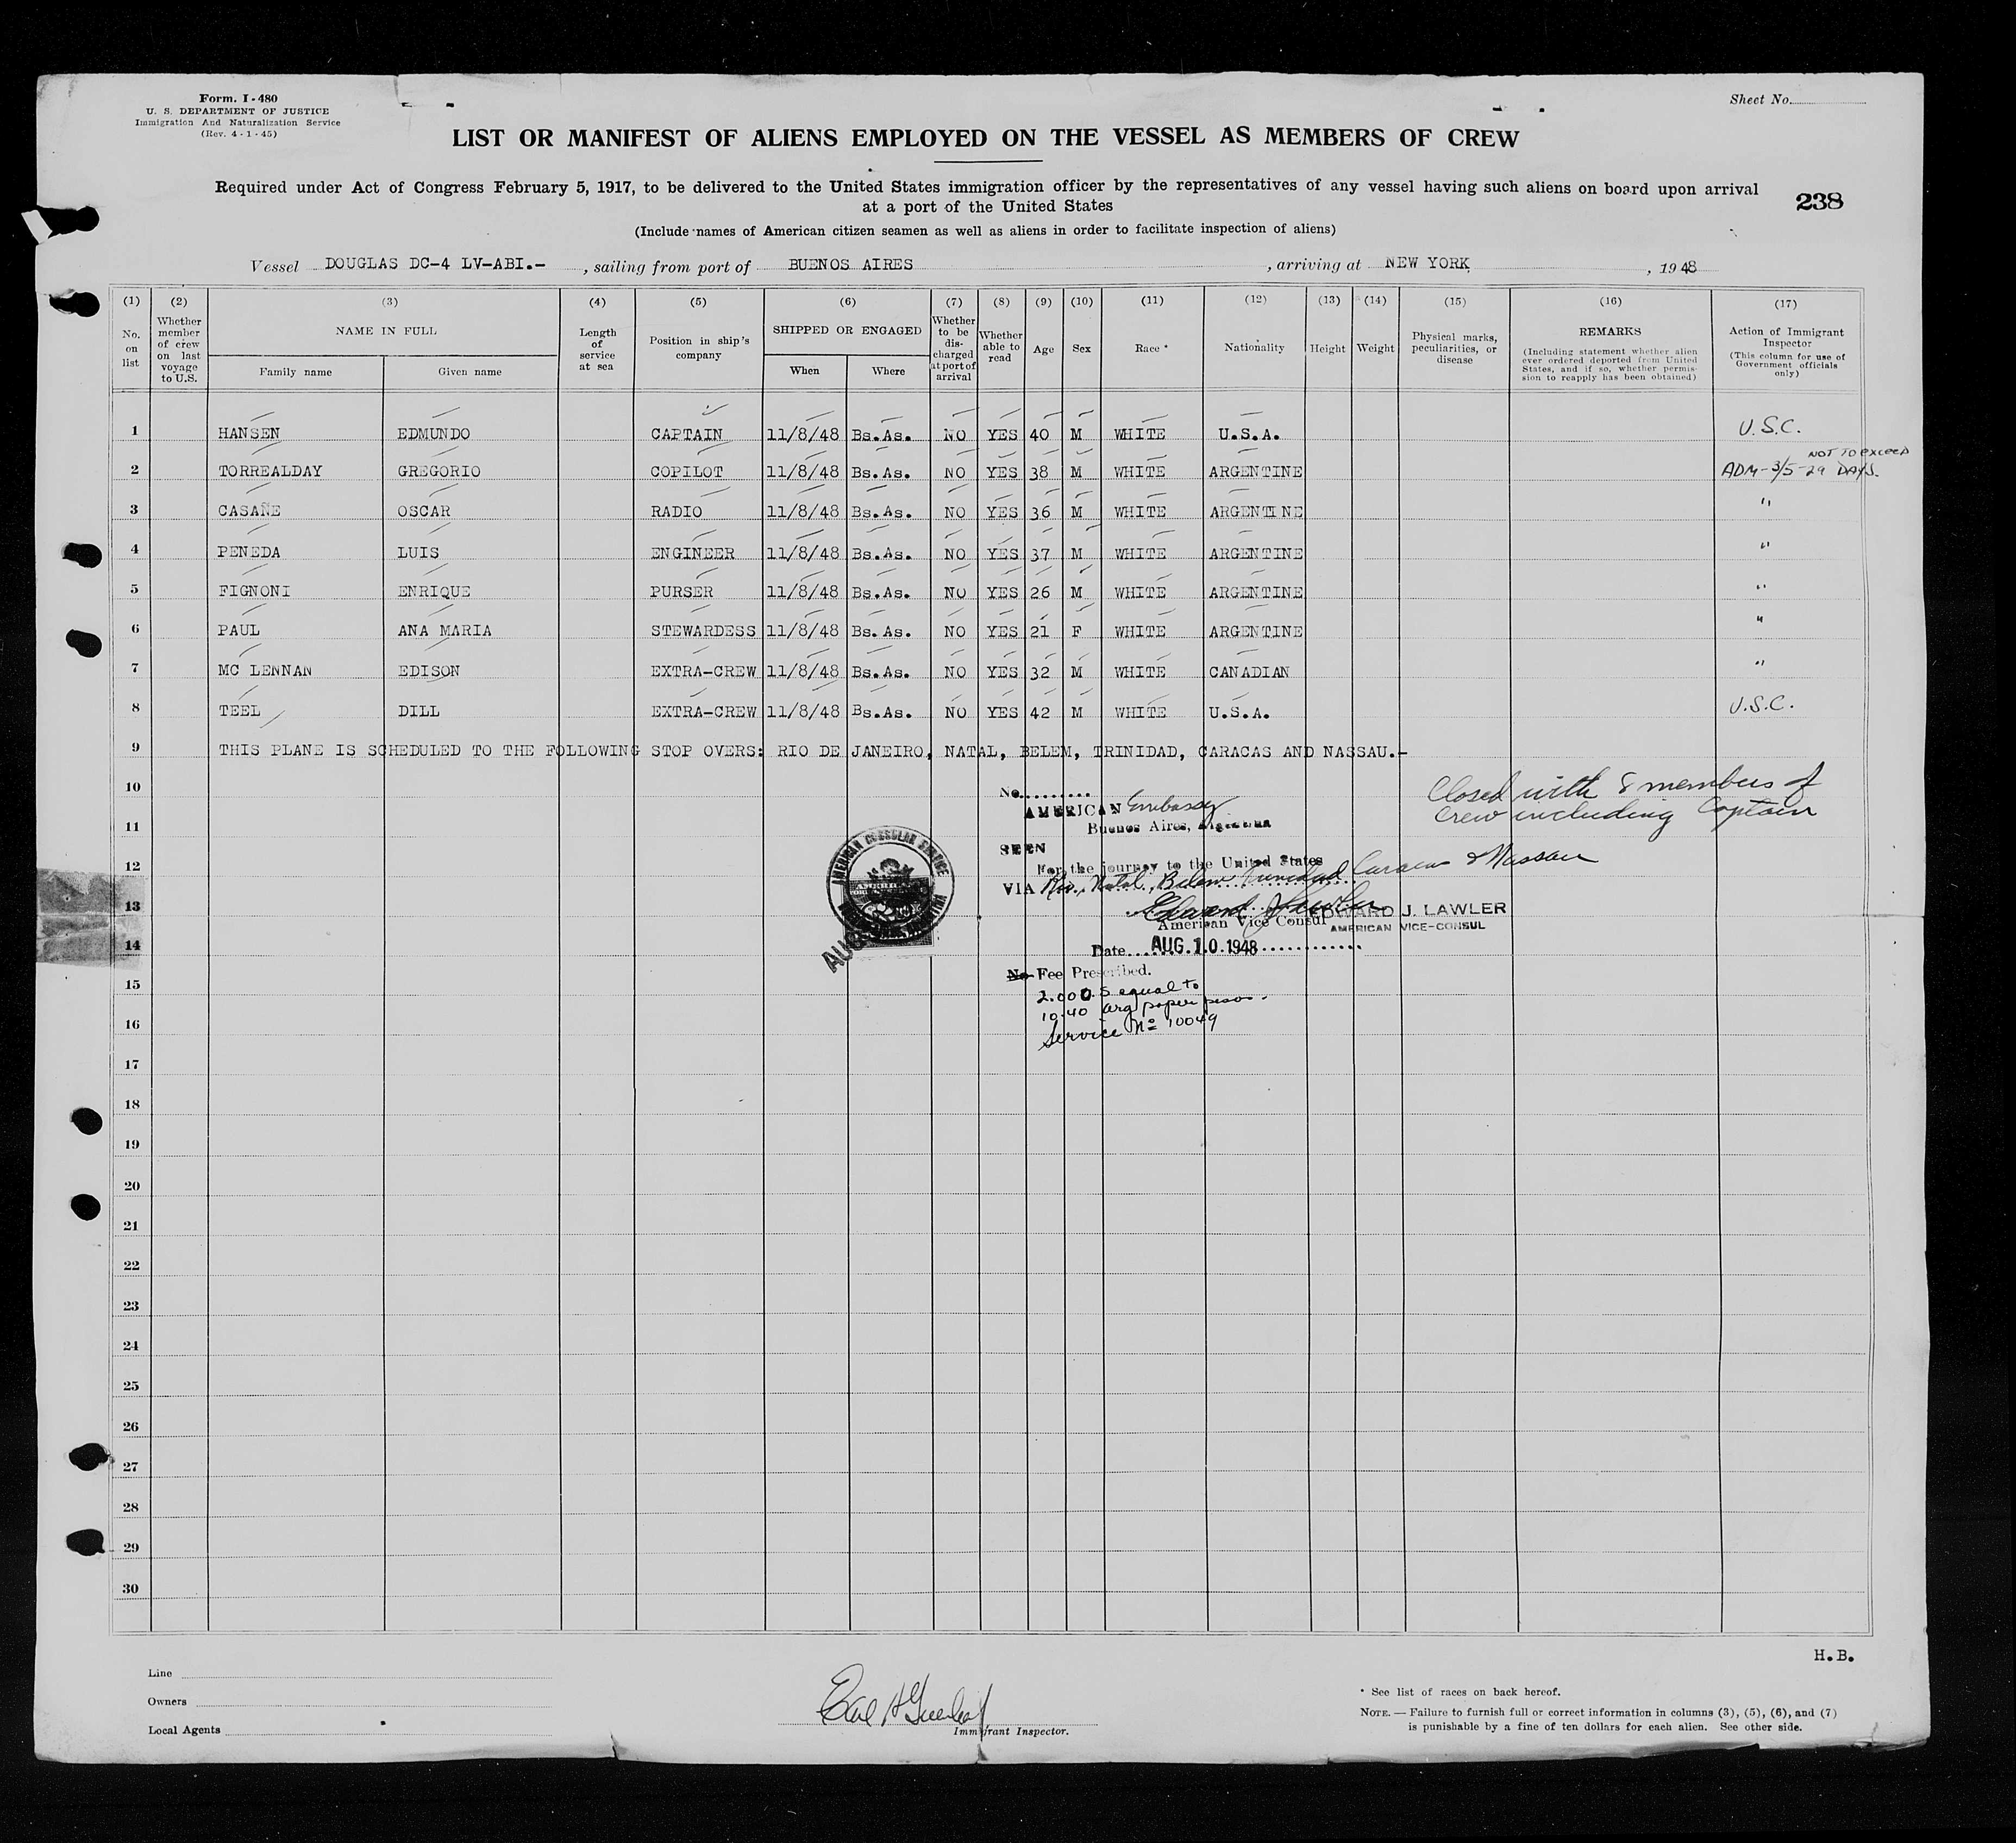 Form. I-480
U. S. DEPARTMENT OF JUSTICE
Immigration And Naturalization Service
(Rev. 4-1-45)
Sheet No.
LIST OR MANIFEST OF ALIENS EMPLOYED ON THE VESSEL AS MEMBERS OF CREW
Required under Act of Congress February 5, 1917, to be delivered to the United States immigration officer by the representatives of any vessel having such aliens on board upon arrival
at a port of the United States
238
(Include names of American citizen seamen as well as aliens in order to facilitate inspection of aliens)
Vessel DOUGLAS DC-4 LV-ABI.- , sailing from port of BUENOS AIRES , arriving at NEW YORK , 1948
(1) (2) (3) (4) (5) (6) (7) (8) (9) (10) (11) (12) (13) (14) (15) (16) (17)
No. on list
Whether member of crew on last voyage to U.S.
NAME IN FULL
Family name Given name
Length of service at sea
Position in ship's company
SHIPPED OR ENGAGED
When Where
Whether to be discharged at port of arrival
Whether able to read
Age
Sex
Race *
Nationality
Height
Weight
Physical marks, peculiarities, or disease
REMARKS
(Including statement whether alien ever ordered deported from United States, and if so, whether permission to reapply has been obtained)
Action of Immigrant Inspector
(This column for use of Government officials only)
1 HANSEN EDMUNDO CAPTAIN 11/8/48 Bs.As. NO YES 40 M WHITE U.S.A. U.S.C.
NOT TO EXCEED
2 TORREALDAY GREGORIO COPILOT 11/8/48 Bs.As. NO YES 38 M WHITE ARGENTINE ADM-3/5-29 DAYS.
3 CASAÑE OSCAR RADIO 11/8/48 Bs.As. NO YES 36 M WHITE ARGENTINE "
4 PENEDA LUIS ENGINEER 11/8/48 Bs.As. NO YES 37 M WHITE ARGENTINE "
5 FIGNONI ENRIQUE PURSER 11/8/48 Bs.As. NO YES 26 M WHITE ARGENTINE "
6 PAUL ANA MARIA STEWARDESS 11/8/48 Bs.As. NO YES 21 F WHITE ARGENTINE "
7 MC LENNAN EDISON EXTRA-CREW 11/8/48 Bs.As. NO YES 32 M WHITE CANADIAN "
8 TEEL DILL EXTRA-CREW 11/8/48 Bs.As. NO YES 42 M WHITE U.S.A. U.S.C.
9 THIS PLANE IS SCHEDULED TO THE FOLLOWING STOP OVERS: RIO DE JANEIRO, NATAL, BELEM, TRINIDAD, CARACAS AND NASSAU.-
10
No.
Closed with 8 members of
crew including Captain
AMERICAN Embassy
11
Buenos Aires, Argentina
SEEN
12
For the journey to the United States
VIA Rio, Natal, Belem Trinidad Caracas & Nassau
AMERICAN CONSULAR SERVICE
AUG
13
Edward J Lawler
EDWARD J. LAWLER
American Vice Consul
AMERICAN VICE-CONSUL
14
Date AUG. 10. 1948
No Fee Prescribed.
15
2.00 U.S equal to
10.40 arg paper pesos.
16
Service No 10049
17
18
19
20
21
22
23
24
25
26
27
28
29
30
H.B.
Line
Owners
Local Agents
Immigrant Inspector.
* See list of races on back hereof.
NOTE. — Failure to furnish full or correct information in columns (3), (5), (6), and (7)
is punishable by a fine of ten dollars for each alien. See other side.